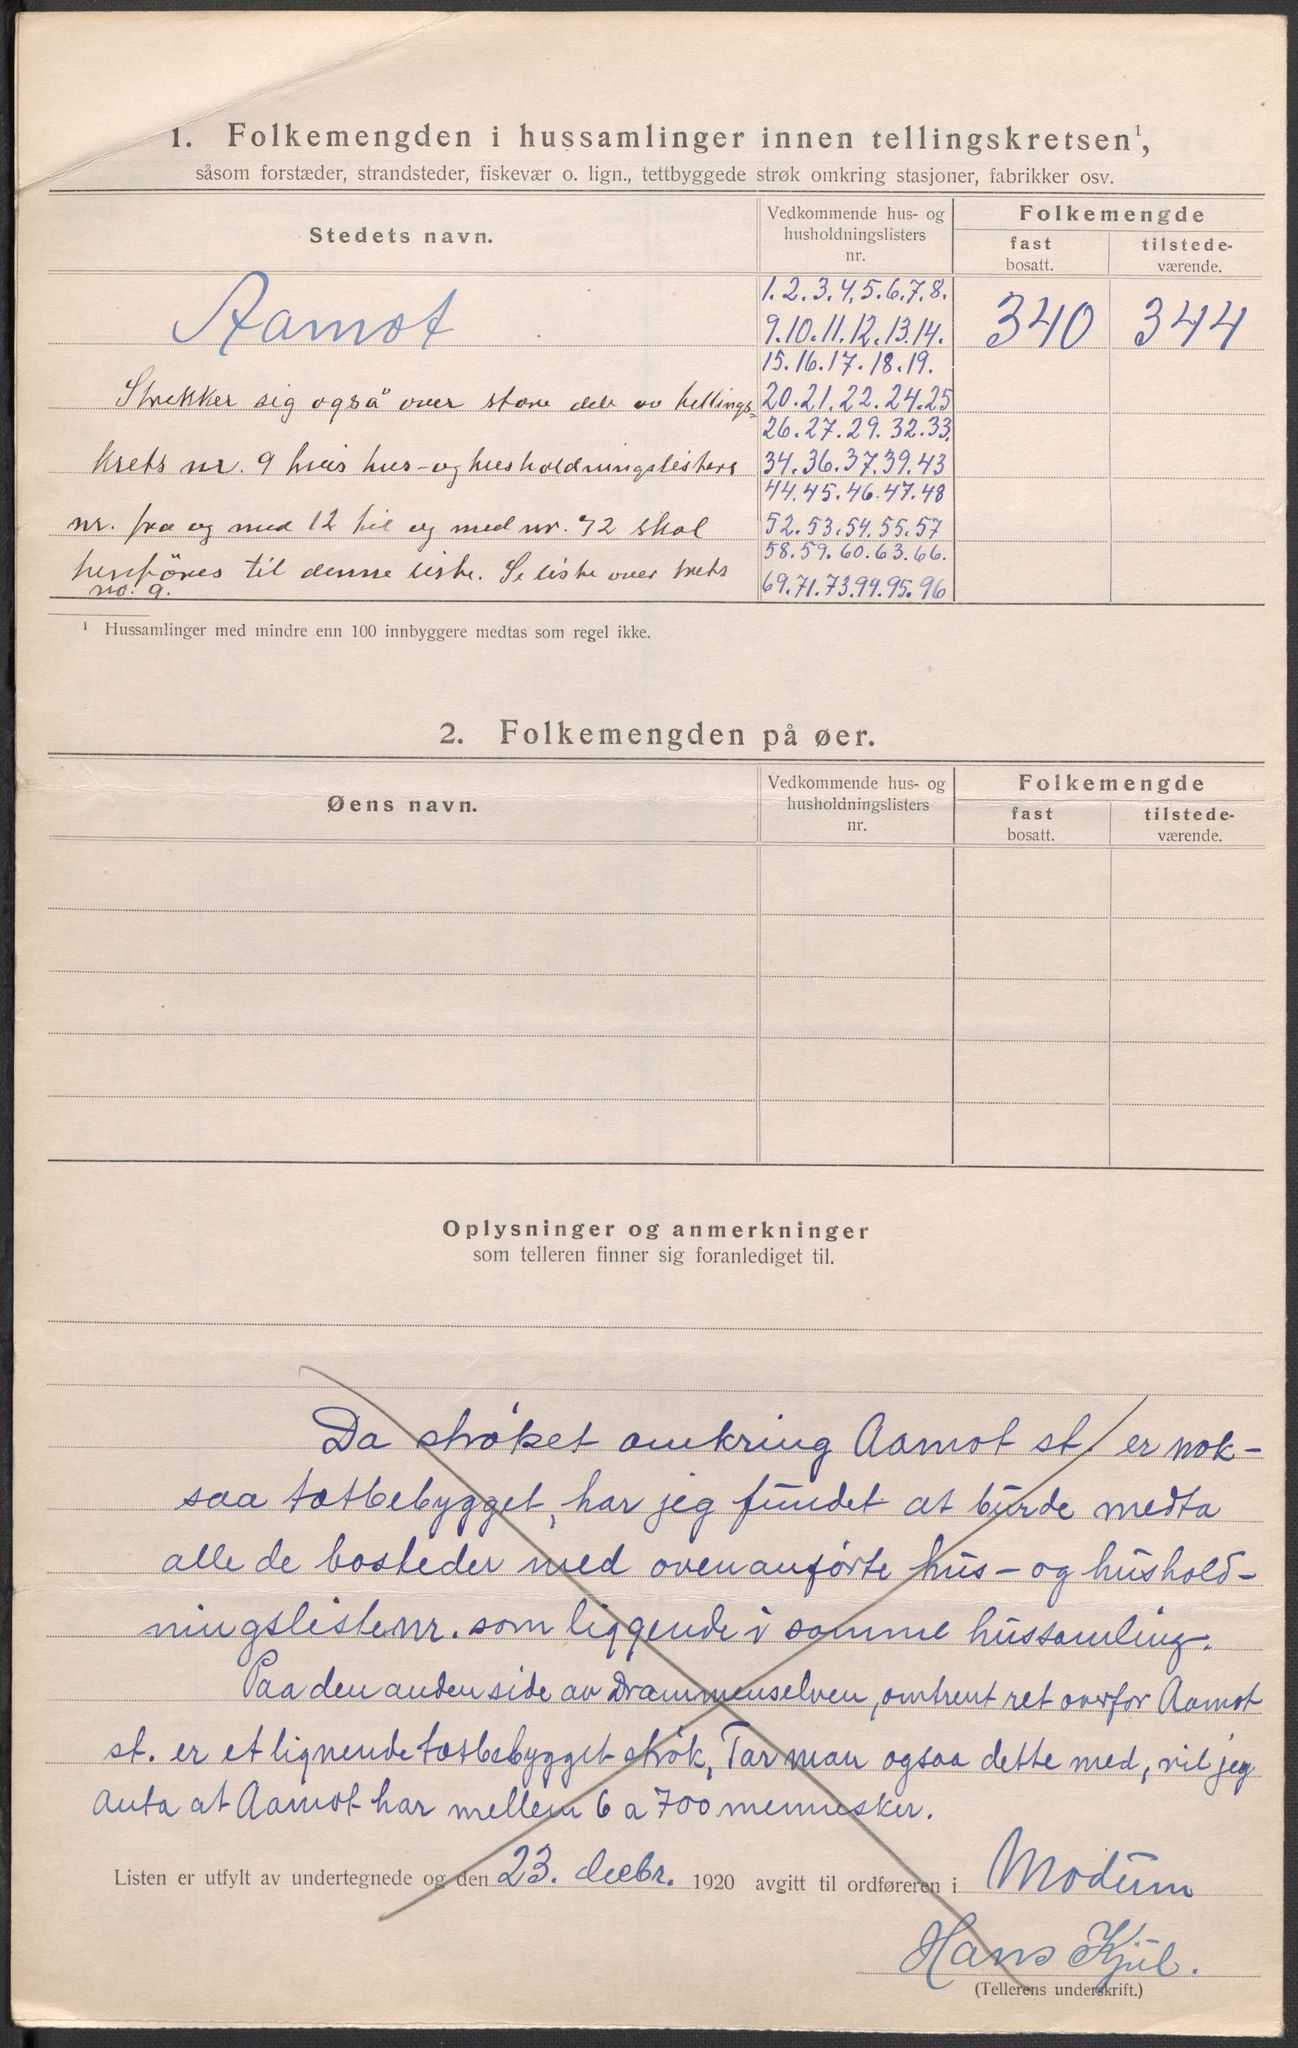 1. Folkemengden i hussamlinger innen tellingskretsen¹,
såsom forstæder, strandsteder, fiskevær o. lign., tettbyggede strøk omkring stasjoner, fabrikker osv.
Stedets navn.
Vedkommende hus- og
husholdningslisters
nr.
Folkemengde
fast
bosatt.
tilstede-
værende.
Aamot
1.2.3.4.5.6.7.8.
9.10.11.12.13.14.
340
344
15.16.17.18.19.
Strekker sig også over store del av tellings-
20.21.22.24.25
26.27.29.32.33.
krets nr. 9 hvis hus- og husholdningslisters
34.36.37.39.43
44.45.46.47.48
nr. fra og med 12 til og med nr. 72 skal
52.53.54.55.57
58.59.60.63.66.
henföres til denne liste. Se liste over krets
no. 9.
69.71.73.94.95.96
¹ Hussamlinger med mindre enn 100 innbyggere medtas som regel ikke.
2. Folkemengden på øer.
Øens navn.
Vedkommende hus- og
husholdningslisters
nr.
Folkemengde
fast
bosatt.
tilstede-
værende.
Oplysninger og anmerkninger
som telleren finner sig foranlediget til.
Da strøket omkring Aamot st. er nok-
saa tætbebygget, har jeg fundet at burde medta
alle de bosteder med ovenanførte hus- og hushold-
ningslistenr. som liggende i samme hussamling.
Paa den anden side av Drammenselven, omtrent ret overfor Aamot
st. er et lignende tætbebygget strøk, Tar man ogsaa dette med, vil jeg
anta at Aamot har mellem 6 a 700 mennesker.
Listen er utfylt av undertegnede og den 23. decbr. 1920 avgitt til ordføreren i Modum
Hans Kjül.
(Tellerens underskrift.)